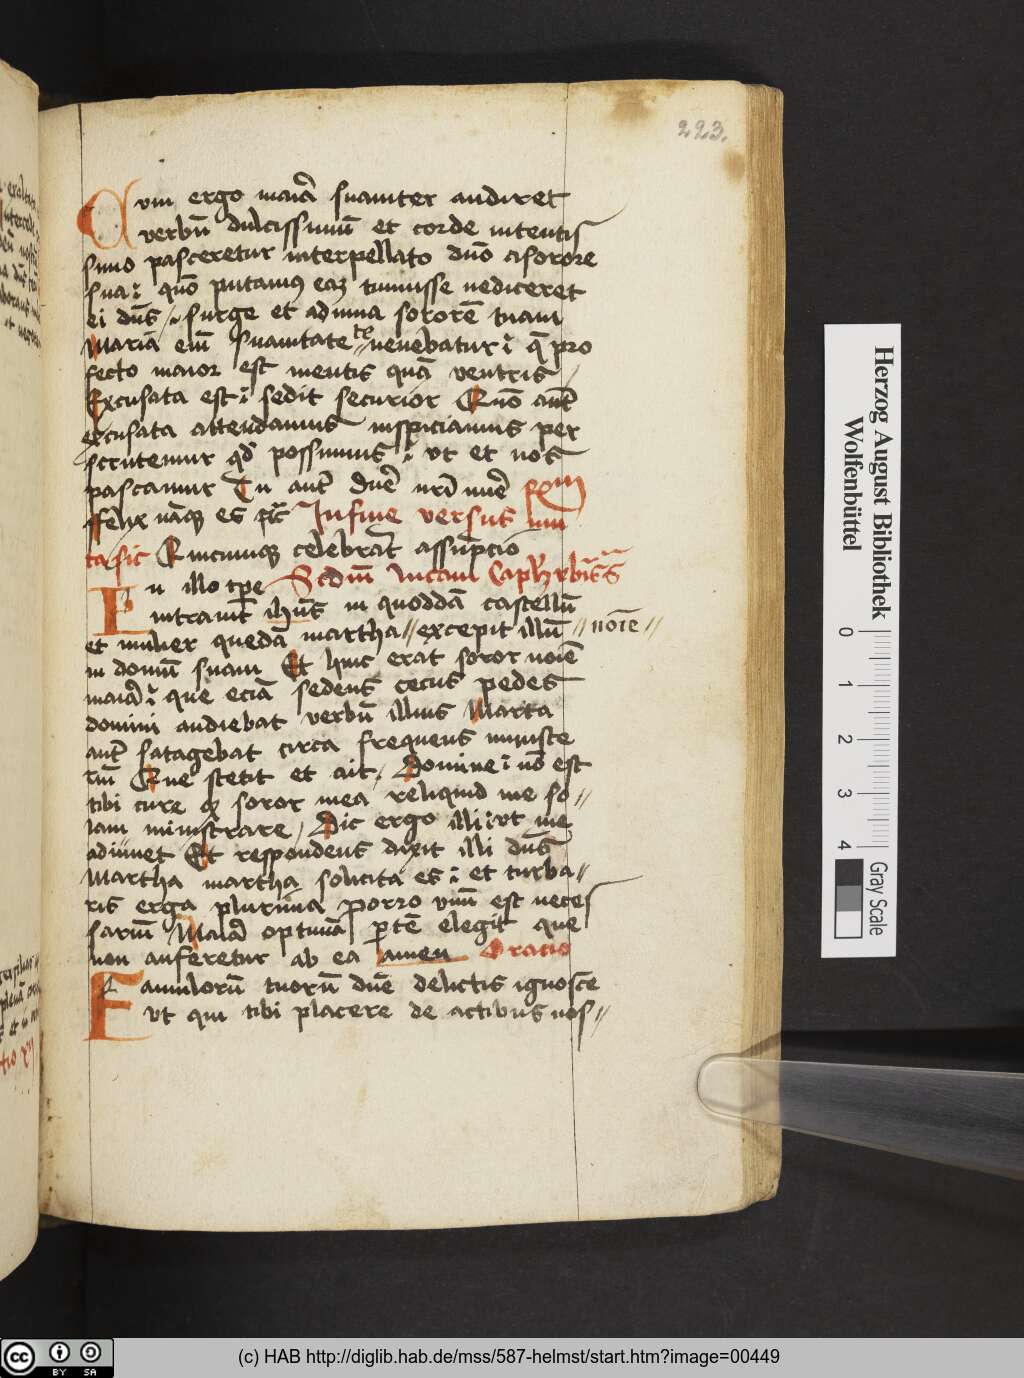 223.
Cum ergo maria suauiter audiret
verbū dulcissimū et corde intentis
simo pasceretur interpellato dño a sorore
sua quō putamꝰ eaꝫ timuisse ne diceret
ei dñs surge et adiuua sororē tuam
Maria em̄ suauitate tenebatur q̄ pro
fecto maior est mentis quā ventris
Excusata est sedit securior Quō aut̄
excusata attendamus inspiciamus per
scrutemur qd̄ possimus vt et nos
pascamur Tu aut̄ dn̄e nr̄i
Felix nāqꝫ es In fine versus
ta sic Quicumqꝫ celebrāt assūpcio
Scdm̄ lucam
In illo tpe
intrauit ihūs in quoddā castellū
et mulier quedā martha // excepit illū // noīe //
in domū suam Et huic erat soror noīe
maria que eciā sedens secus pedes
domini audiebat verbū illius Marta
aut̄ satagebat circa frequens ministe
riū Que stetit et ait Domine nō est
tibi cure ꝙ soror mea reliquid me so //
lam ministrare Dic ergo illi vt me
adiuuet Et respondens dixit illi dn̄s
Martha martha solicita es et turba //
ris erga plurima porro vnū est neces
sariū Maria optimā ꝑtē elegit que
non auferetur ab ea amen Oratio
Famulorū tuorū dn̄e delictis ignosce
vt qui tibi placere de actibus nos //
Herzog August Bibliothek
Wolfenbüttel
0 1 2 3 4
Gray Scale
cc BY SA
(c) HAB http://diglib.hab.de/mss/587-helmst/start.htm?image=00449